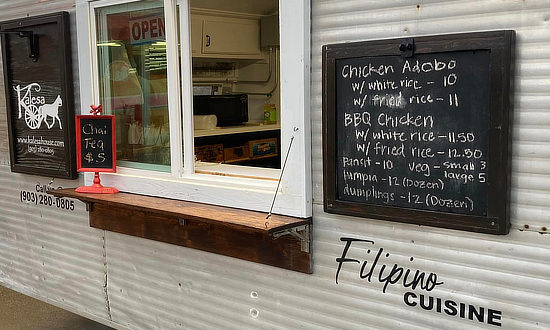 OPEN
Kalesa
www.kalesahouse.com
(903) 280-0805
Chai
Tea
$5
Call
(903) 280-0805
Chicken Adobo
w/ white rice - 10
w/ fried rice - 11
BBQ Chicken
w/ white rice - 11.50
w/ fried rice - 12.50
Pansit - 10 veg - small 3
large 5
lumpia - 12 (Dozen)
dumplings - 12 (Dozen)
Filipino
CUISINE